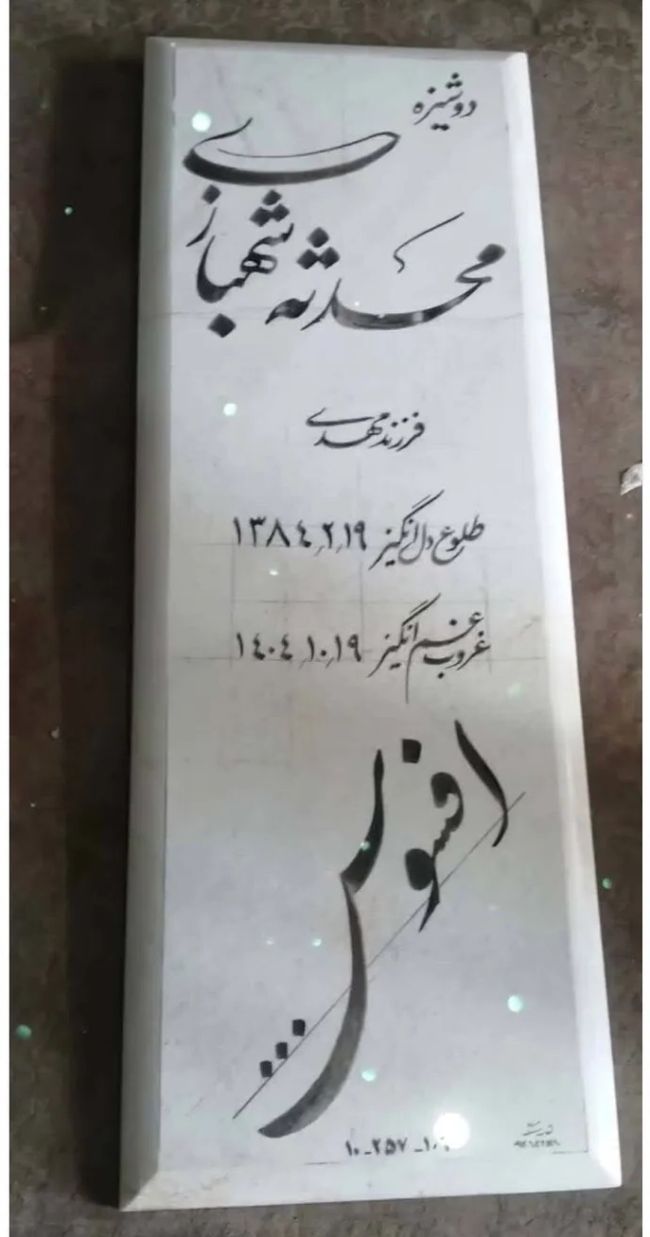 دوشیزه
محدثه شهبازی
فرزند مهدی
طلوع دل انگیز ۱۳۸۴٫۲٫۱۹
غروب غم انگیز ۱۴۰۴٫۱۰٫۱۹
افسوس...